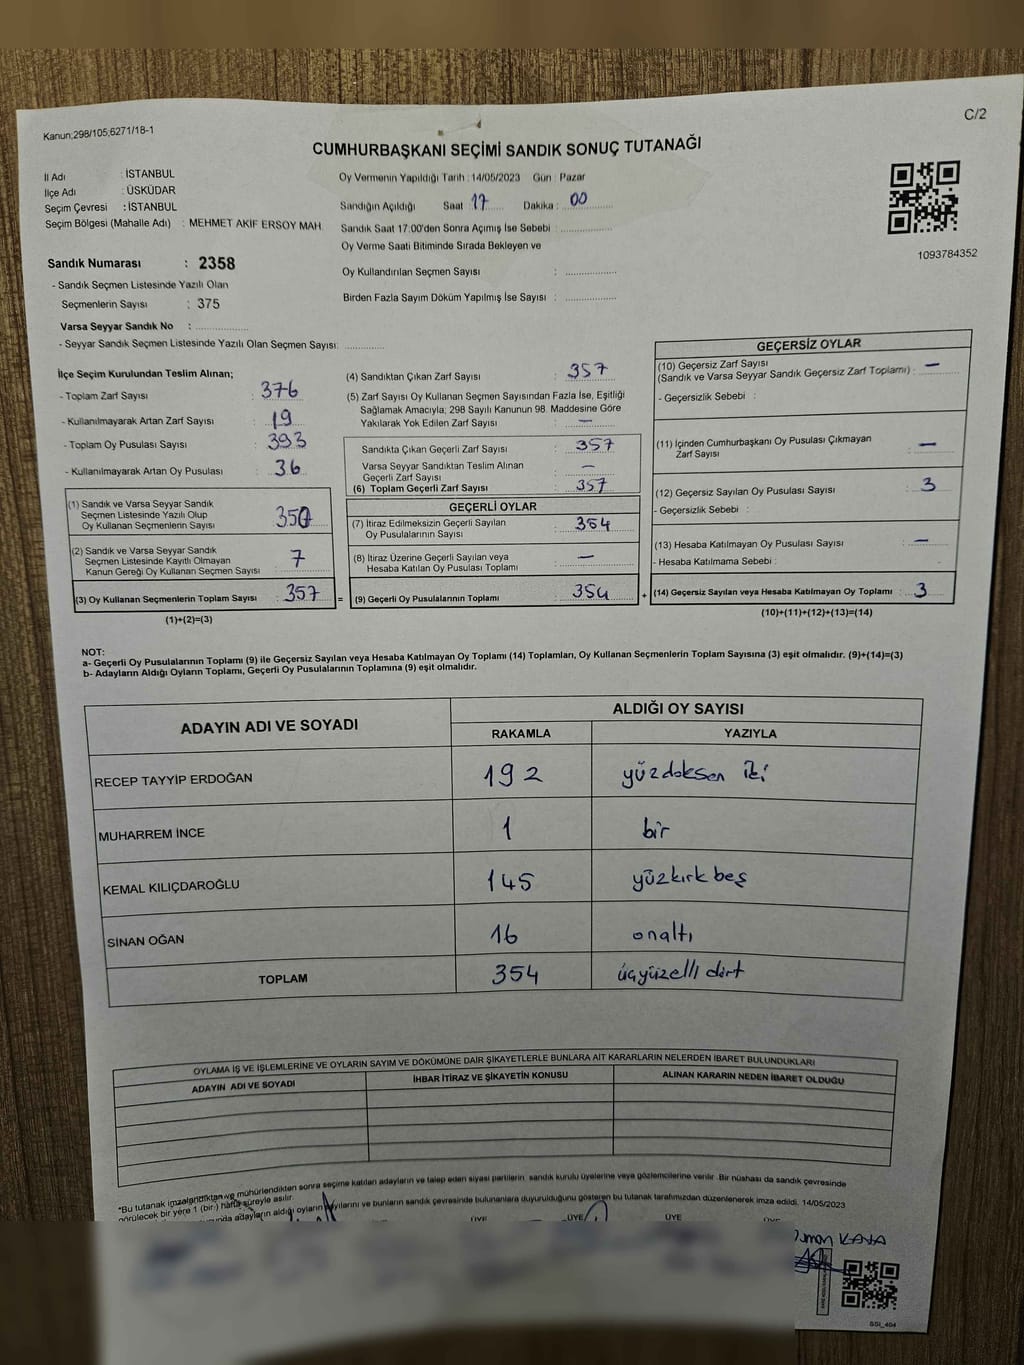 Kanun;298/105;6271/18-1
C/2
CUMHURBAŞKANI SEÇİMİ SANDIK SONUÇ TUTANAĞI
İl Adı : İSTANBUL
İlçe Adı : ÜSKÜDAR
Seçim Çevresi : İSTANBUL
Seçim Bölgesi (Mahalle Adı) : MEHMET AKİF ERSOY MAH.
Oy Vermenin Yapıldığı Tarih : 14/05/2023 Gün : Pazar
Sandığın Açıldığı Saat 17 Dakika : 00
Sandık Saat 17:00'den Sonra Açımış İse Sebebi :
Oy Verme Saati Bitiminde Sırada Bekleyen ve
Oy Kullandırılan Seçmen Sayısı :
Birden Fazla Sayım Döküm Yapılmış İse Sayısı :
1093784352
Sandık Numarası : 2358
- Sandık Seçmen Listesinde Yazılı Olan
Seçmenlerin Sayısı : 375
Varsa Seyyar Sandık No :
- Seyyar Sandık Seçmen Listesinde Yazılı Olan Seçmen Sayısı:
İlçe Seçim Kurulundan Teslim Alınan;
- Toplam Zarf Sayısı : 376
- Kullanılmayarak Artan Zarf Sayısı : 19
- Toplam Oy Pusulası Sayısı : 393
- Kullanılmayarak Artan Oy Pusulası : 36
(1) Sandık ve Varsa Seyyar Sandık
Seçmen Listesinde Yazılı Olup
Oy Kullanan Seçmenlerin Sayısı : 350
(2) Sandık ve Varsa Seyyar Sandık
Seçmen Listesinde Kayıtlı Olmayan
Kanun Gereği Oy Kullanan Seçmen Sayısı : 7
(3) Oy Kullanan Seçmenlerin Toplam Sayısı : 357 =
(1)+(2)=(3)
(4) Sandıktan Çıkan Zarf Sayısı : 357
(5) Zarf Sayısı Oy Kullanan Seçmen Sayısından Fazla İse, Eşitliği
Sağlamak Amacıyla; 298 Sayılı Kanunun 98. Maddesine Göre
Yakılarak Yok Edilen Zarf Sayısı : —
Sandıkta Çıkan Geçerli Zarf Sayısı : 357
Varsa Seyyar Sandıktan Teslim Alınan
Geçerli Zarf Sayısı : —
(6) Toplam Geçerli Zarf Sayısı : 357
GEÇERLİ OYLAR
(7) İtiraz Edilmeksizin Geçerli Sayılan
Oy Pusulalarının Sayısı : 354
(8) İtiraz Üzerine Geçerli Sayılan veya
Hesaba Katılan Oy Pusulası Toplamı : —
(9) Geçerli Oy Pusulalarının Toplamı : 354 +
GEÇERSİZ OYLAR
(10) Geçersiz Zarf Sayısı
(Sandık ve Varsa Seyyar Sandık Geçersiz Zarf Toplamı) : —
- Geçersizlik Sebebi :
(11) İçinden Cumhurbaşkanı Oy Pusulası Çıkmayan
Zarf Sayısı : —
(12) Geçersiz Sayılan Oy Pusulası Sayısı : 3
- Geçersizlik Sebebi :
(13) Hesaba Katılmayan Oy Pusulası Sayısı : —
- Hesaba Katılmama Sebebi :
(14) Geçersiz Sayılan veya Hesaba Katılmayan Oy Toplamı : 3
(10)+(11)+(12)+(13)=(14)
NOT:
a- Geçerli Oy Pusulalarının Toplamı (9) ile Geçersiz Sayılan veya Hesaba Katılmayan Oy Toplamı (14) Toplamları, Oy Kullanan Seçmenlerin Toplam Sayısına (3) eşit olmalıdır. (9)+(14)=(3)
b- Adayların Aldığı Oyların Toplamı, Geçerli Oy Pusulalarının Toplamına (9) eşit olmalıdır.
ADAYIN ADI VE SOYADI
ALDIĞI OY SAYISI
RAKAMLA YAZIYLA
RECEP TAYYİP ERDOĞAN 192 yüzdoksan iki
MUHARREM İNCE 1 bir
KEMAL KILIÇDAROĞLU 145 yüzkırk beş
SİNAN OĞAN 16 onaltı
TOPLAM 354 üçyüzelli dört
OYLAMA İŞ VE İŞLEMLERİNE VE OYLARIN SAYIM VE DÖKÜMÜNE DAİR ŞİKAYETLERLE BUNLARA AİT KARARLARIN NELERDEN İBARET BULUNDUKLARI
ADAYIN ADI VE SOYADI İHBAR İTİRAZ VE ŞİKAYETİN KONUSU ALINAN KARARIN NEDEN İBARET OLDUĞU
"Bu tutanak imzalandıktan ve mühürlendikten sonra seçime katılan adayların ve talep eden siyasi partilerin sandık kurulu üyelerine veya gözlemcilerine verilir. Bir nüshası da sandık çevresinde
görülecek bir yere 1 (bir) hafta süreyle asılır.
adayların aldığı oyların sayılarını ve bunların sandık çevresinde bulunanlara duyurulduğunu gösteren bu tutanak tarafımızdan düzenlenerek imza edildi. 14/05/2023
ÜYE ÜYE ÜYE ÜYE
KAYA
SSI_404